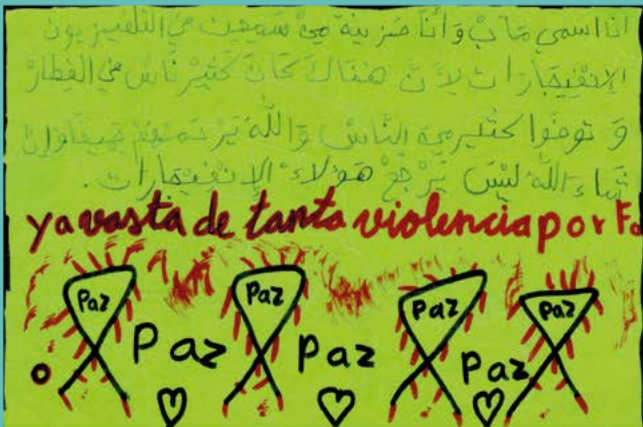 انا اسمي مآب وَأنَا حَزينة مِنْ سَمِعت في التلفيزيون
الإنفيجَارات لأنَّ هنَاك كَانَ كَثيْر نَاسْ في القِطَارْ
وَ توفوا كثير مِن النَّاس وَاللَّه يَرْحَمهُمْ جَميعًا وَإنْ
شَاءَ اللَّه لَيْسَ يَرْجَعْ هَؤلاءْ الإنْفيجَارات .
ya vasta de tanta violencia por Fa
Paz Paz Paz Paz
Paz Paz Paz